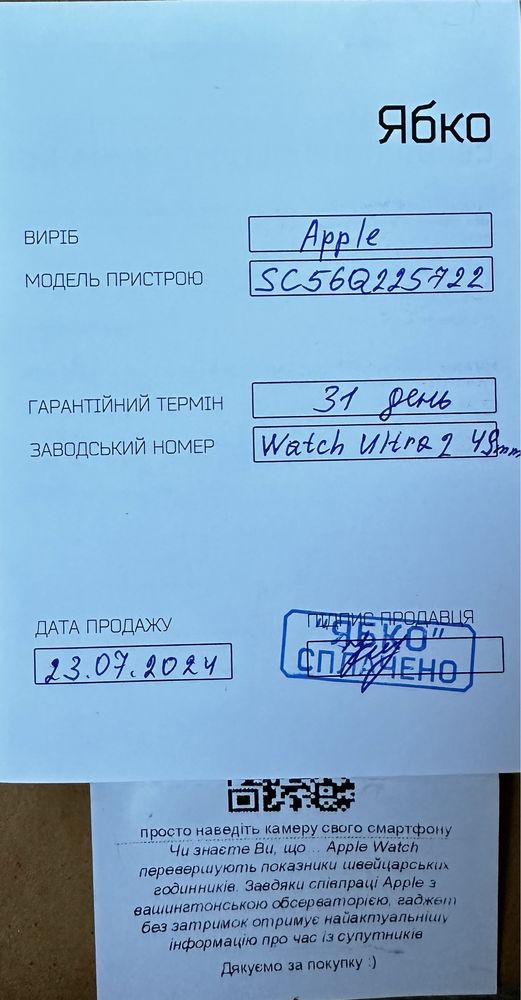 Ябко
ВИРІБ Apple
МОДЕЛЬ ПРИСТРОЮ SC56Q225722
ГАРАНТІЙНИЙ ТЕРМІН 31 день
ЗАВОДСЬКИЙ НОМЕР Watch Ultra 2 49mm
ДАТА ПРОДАЖУ ПІДПИС ПРОДАВЦЯ
23.07.2024 "ЯБКО"
СПЛАЧЕНО
просто наведіть камеру свого смартфону
Чи знаєте Ви, що... Apple Watch
перевершують показники швейцарських
годинників. Завдяки співпраці Apple з
вашингтонською обсерваторією, гаджет
без затримок отримує найактуальнішу
інформацію про час із супутників
Дякуємо за покупку :)